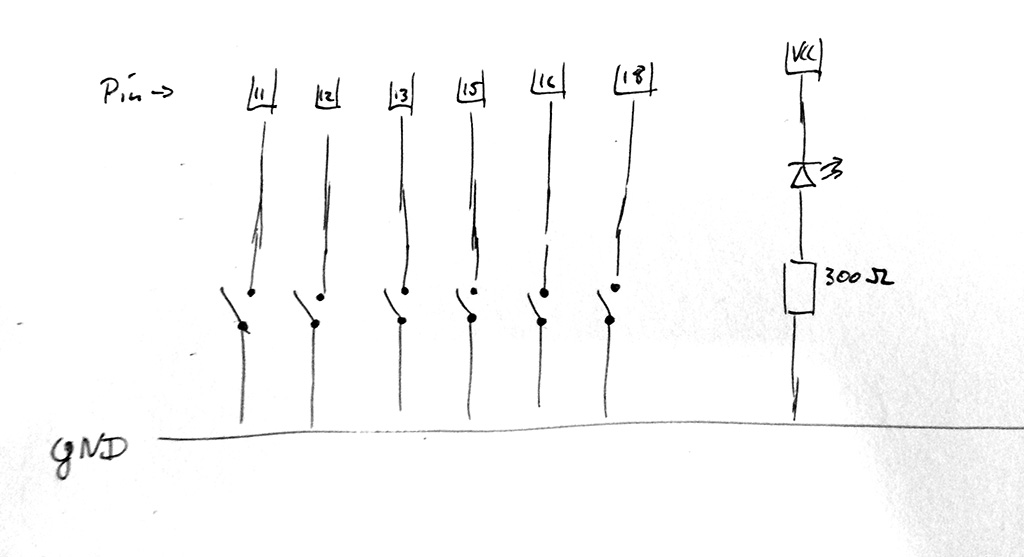 Pin → 11 12 13 15 16 18 VCC
300 Ω
GND